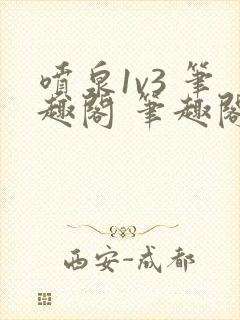 喷泉1v3 笔
趣阁 笔趣阁
西安-成都